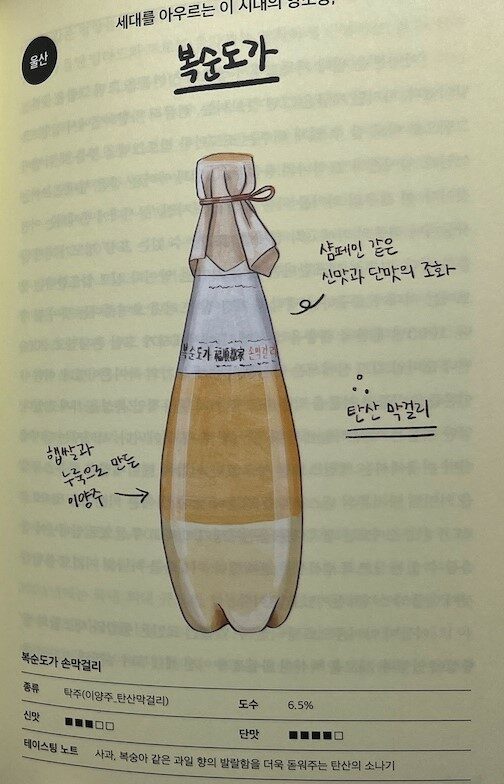 세대를 아우르는 이 시대의
울산
복순도가
샴페인 같은
신맛과 단맛의 조화
복순도가 福順都家 손막걸리
탄산 막걸리
햅쌀과
누룩으로 만든
이양주
복순도가 손막걸리
종류 탁주(이양주_탄산막걸리) 도수 6.5%
신맛 ■■■□□ 단맛 ■■■■□
테이스팅 노트 사과, 복숭아 같은 과일 향의 발랄함을 더욱 돋워주는 탄산의 소나기